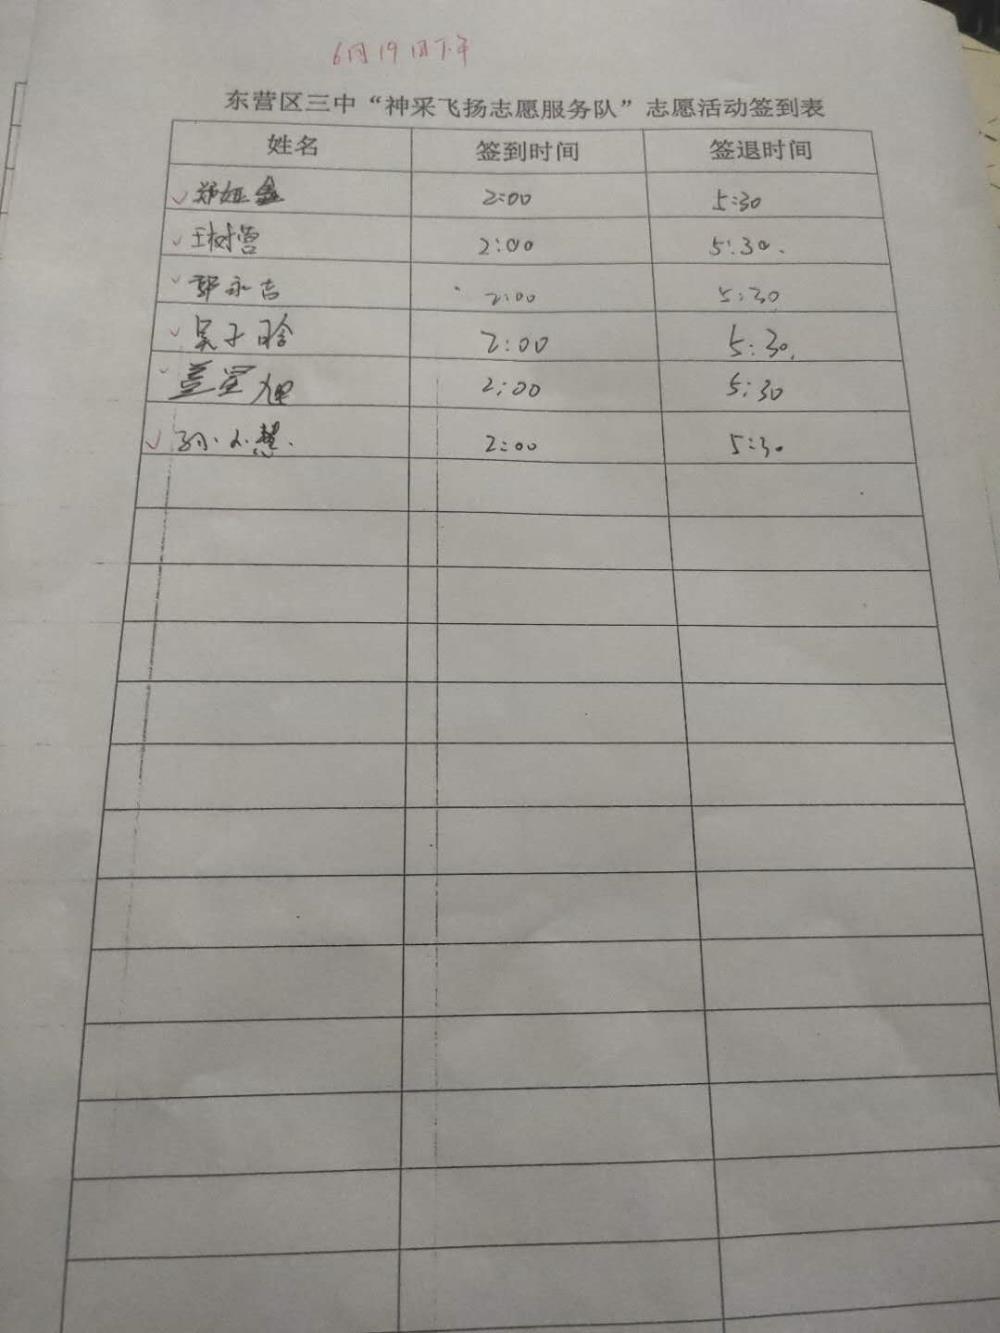 6月19日下午
东营区三中“神采飞扬志愿服务队”志愿活动签到表
姓名 签到时间 签退时间
郑娅鑫 2:00 5:30
王树营 2:00 5:30.
郭永吉 2:00 5:30
吴子晗 2:00 5:30.
星旭 2:00 5:30
孙小慧. 2:00 5:30